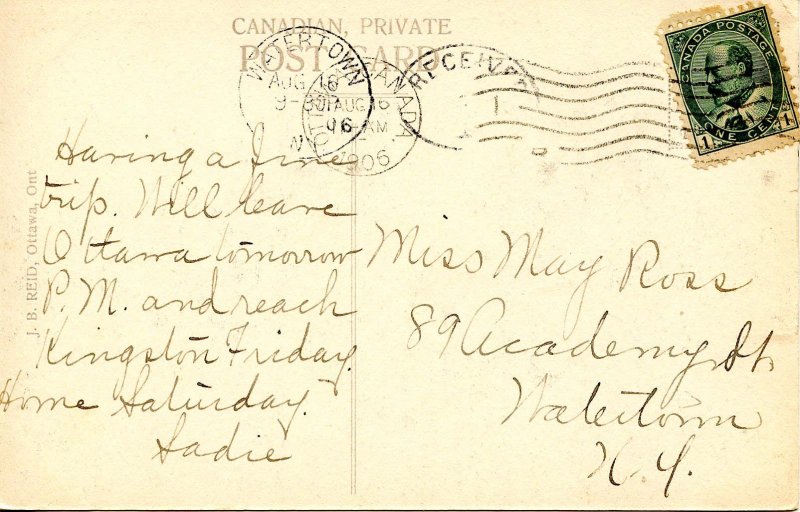 CANADIAN, PRIVATE
POST CARD
WATERTOWN
AUG 16
9-30
06
N
OTTAWA CANADA
AUG 16
AM
1906
RECEIVED
1
CANADA POSTAGE
ONE CENT
1 1
J. B. REID, Ottawa, Ont
Having a fine
trip. Will leave
Ottawa tomorrow
P.M. and reach
Kingston Friday.
Home Saturday.
Sadie
Miss May Ross
89 Academy St,
Watertown
N.Y.